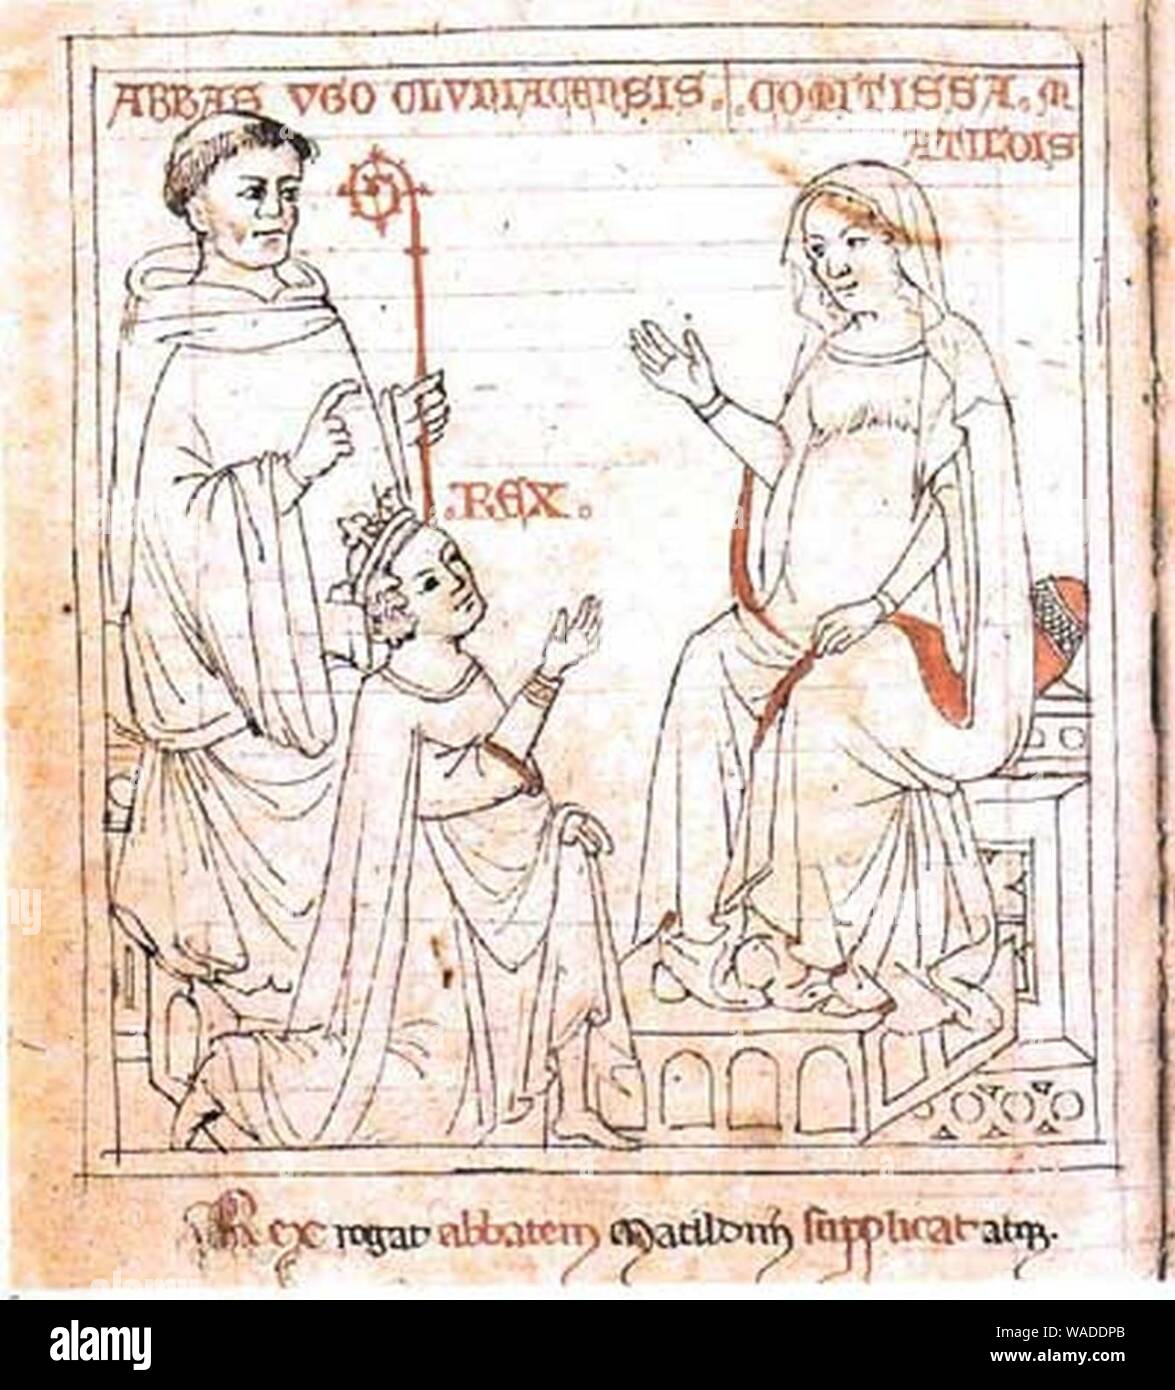 ABBAS VGO CLVNIACENSIS. COMITISSA. M
ATILDIS
.REX.
Rex rogat abbatem Matildim supplicat atq3.
alamy
Image ID: WADDPB
www.alamy.com